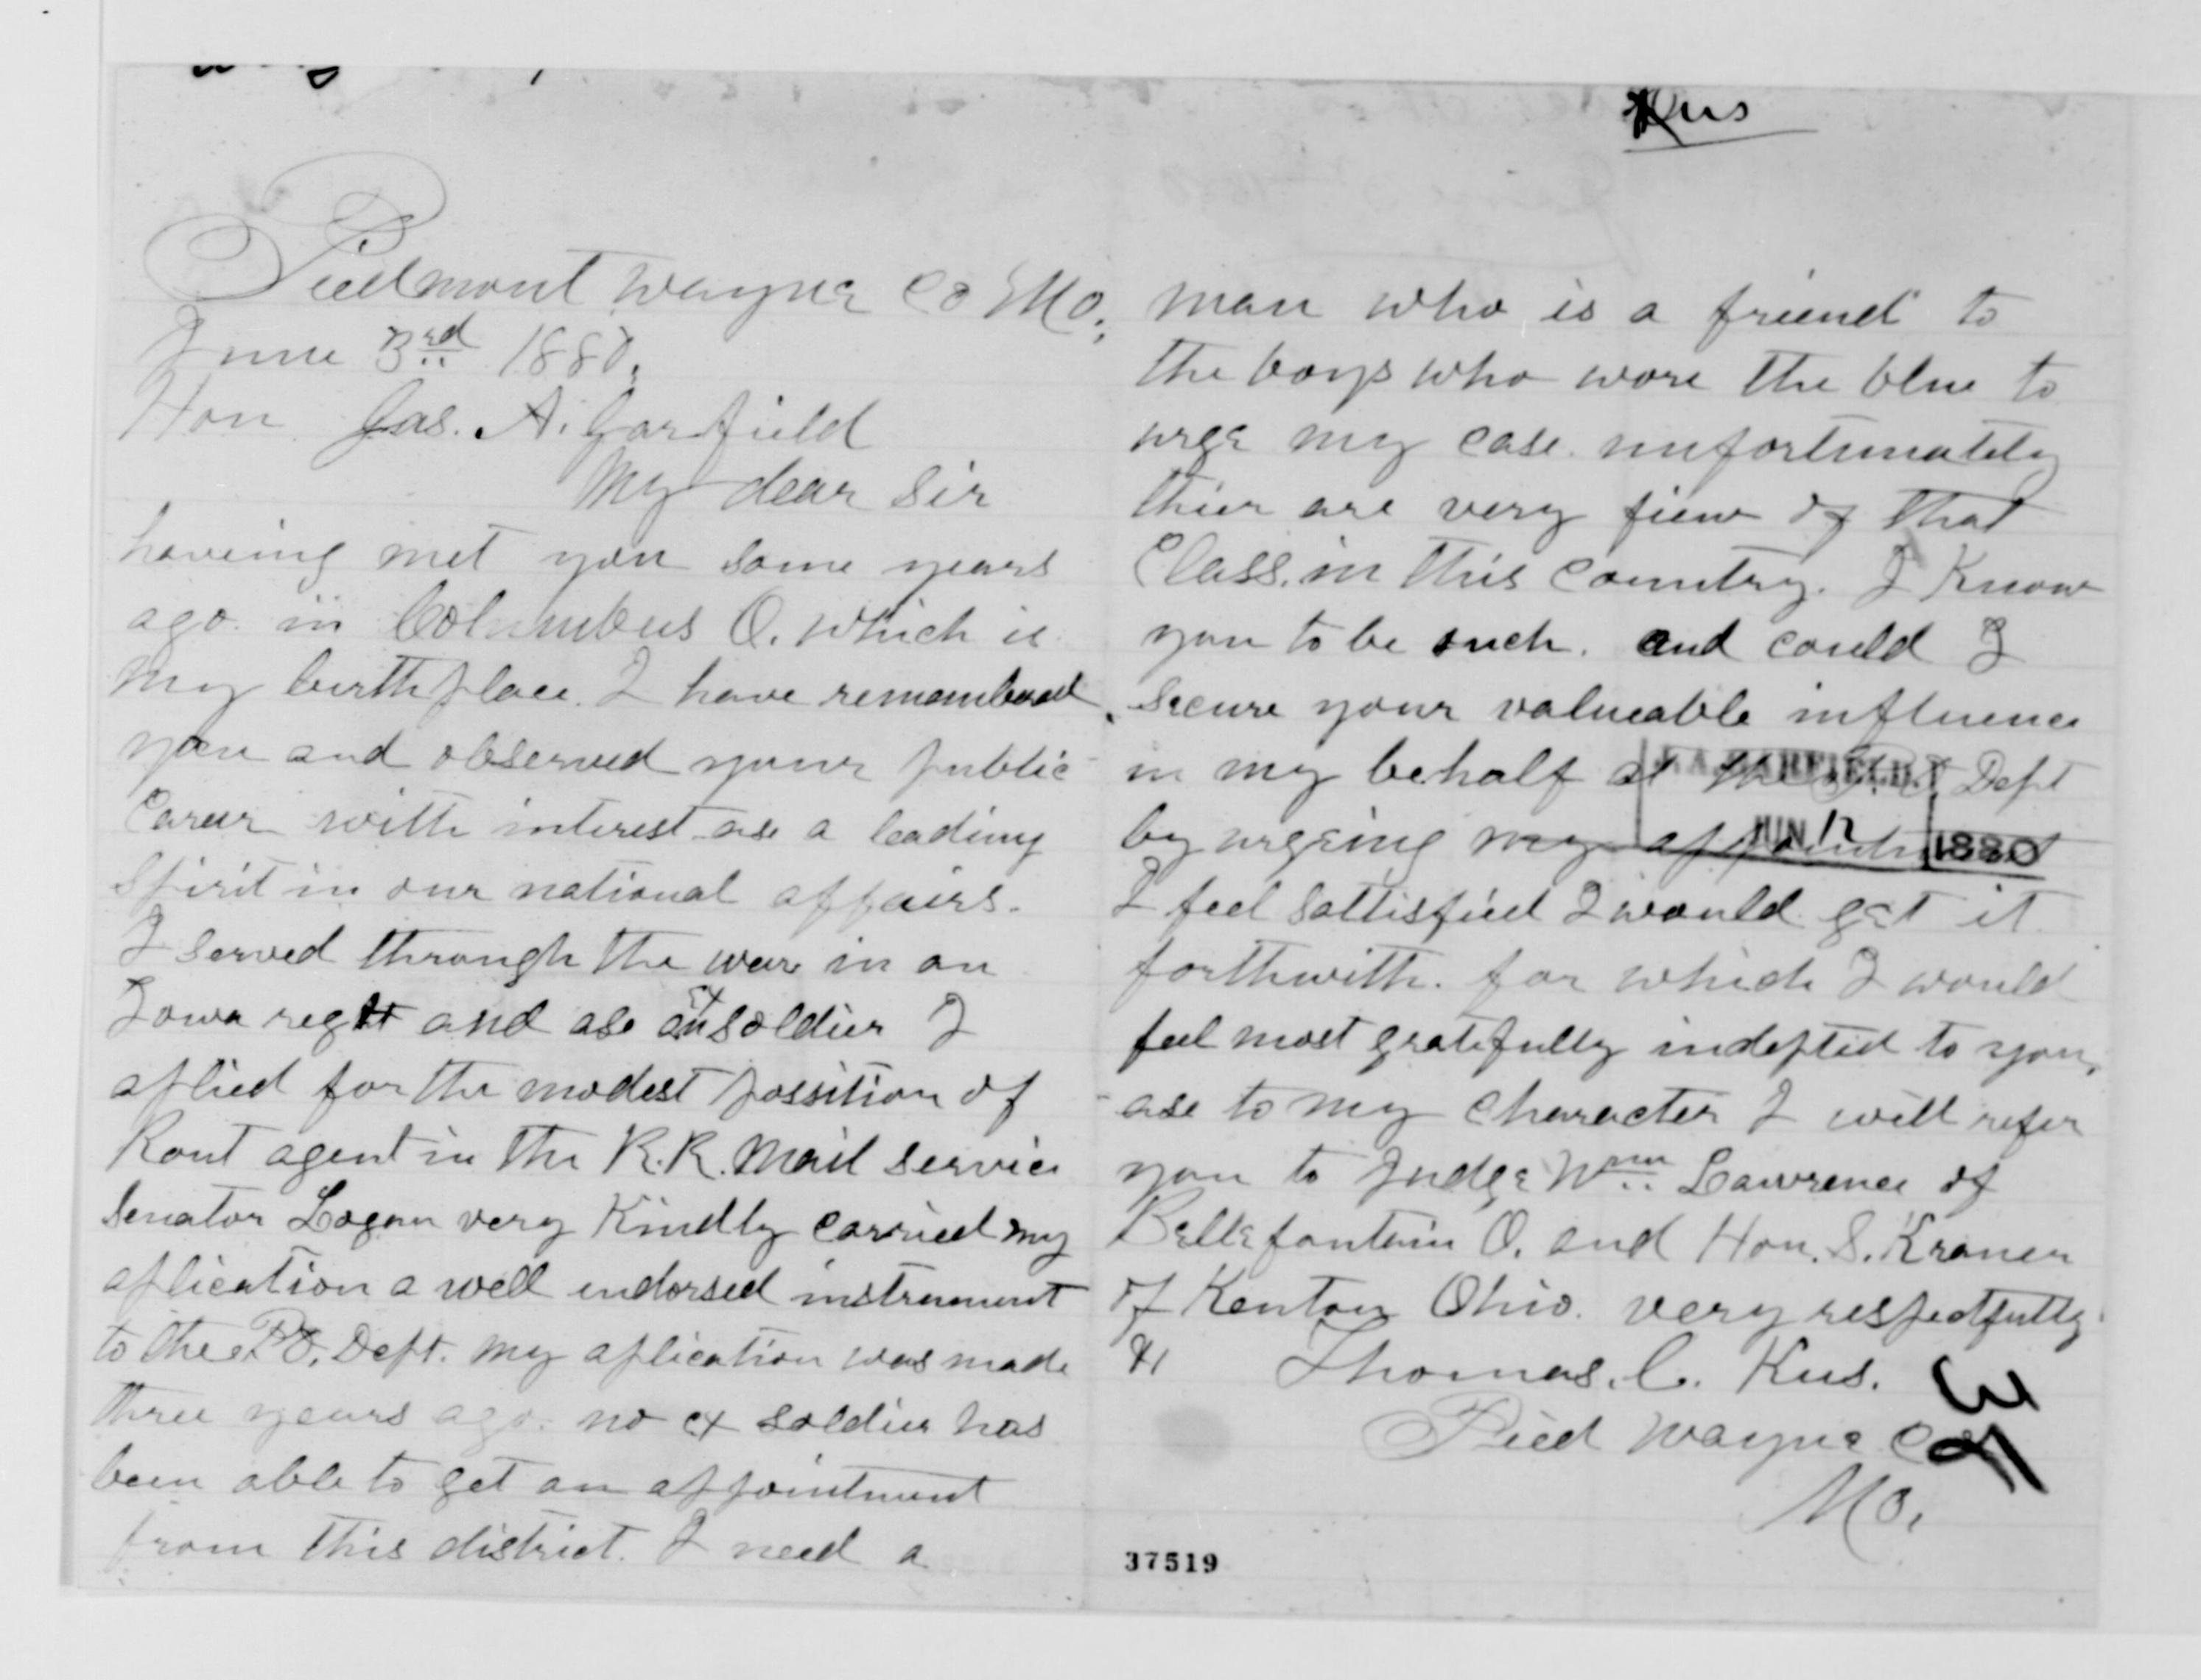 Kus
Piedmont Wayne Co Mo.
June 3rd 1880.
Hon Jas. A. Garfield
My dear Sir
haveing met you some years
ago in Columbus O. which is
my birthplace. I have remembered
you and observed your public
Carear with interest ase a leading
Spirit in our national affairs.
I served through the ware in an
Iowa regt and ase an ex soldier I
aplied for the modest possition of
Rout agent in the R.R. Mail service
Senator Logan very Kindly carried my
aplication a well endorsed instrument
to the P.O. Dept. my aplication was made
three years ago. no ex soldier has
been able to get an appointment
from this district. I need a
man who is a friend to
the boys who wore the blue to
urge my case. unfortunately
thier are very fiew of that
Class. in this country. I Know
you to be such. and could I
secure your valueable influence
in my behalf at the P.O. Dept
by urgeing my appointment
J. A. GARFIELD
JUN 12 1880
I feel sattisfied I would get it
forthwith. for which I would
feel most gratefully indepted to you,
ase to my character I will refer
you to Judge Wm Lawrence of
Bellefontain O. and Hon. S. Kraner
of Kenton Ohio. very respectfully
Thomas. C. Kus.
Pied Wayne Co
Mo.
37519